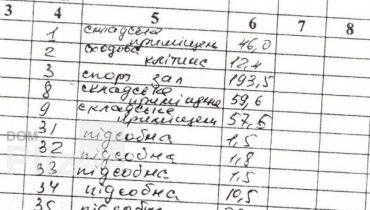 3 4 5 6 7 8
1 складське
приміщен 46,0
2 сходова
клітина 12,4
3 спорт зал 193,5
8 складське
приміщен 59,6
9 складське
приміщен 57,6
31 підсобна 1,5
32 підсобна 1,8
33 підсобна 1,5
34 підсобна 10,5
35 підсобна
DOM